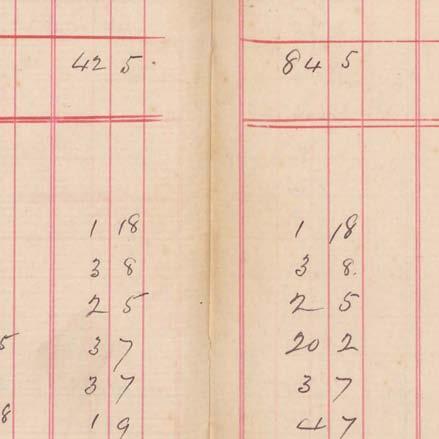 42 5 84 5
1 18 1 18
3 8 3 8.
2 5 2 5
5 3 7 20 2
3 7 3 7
8 1 9 4 7